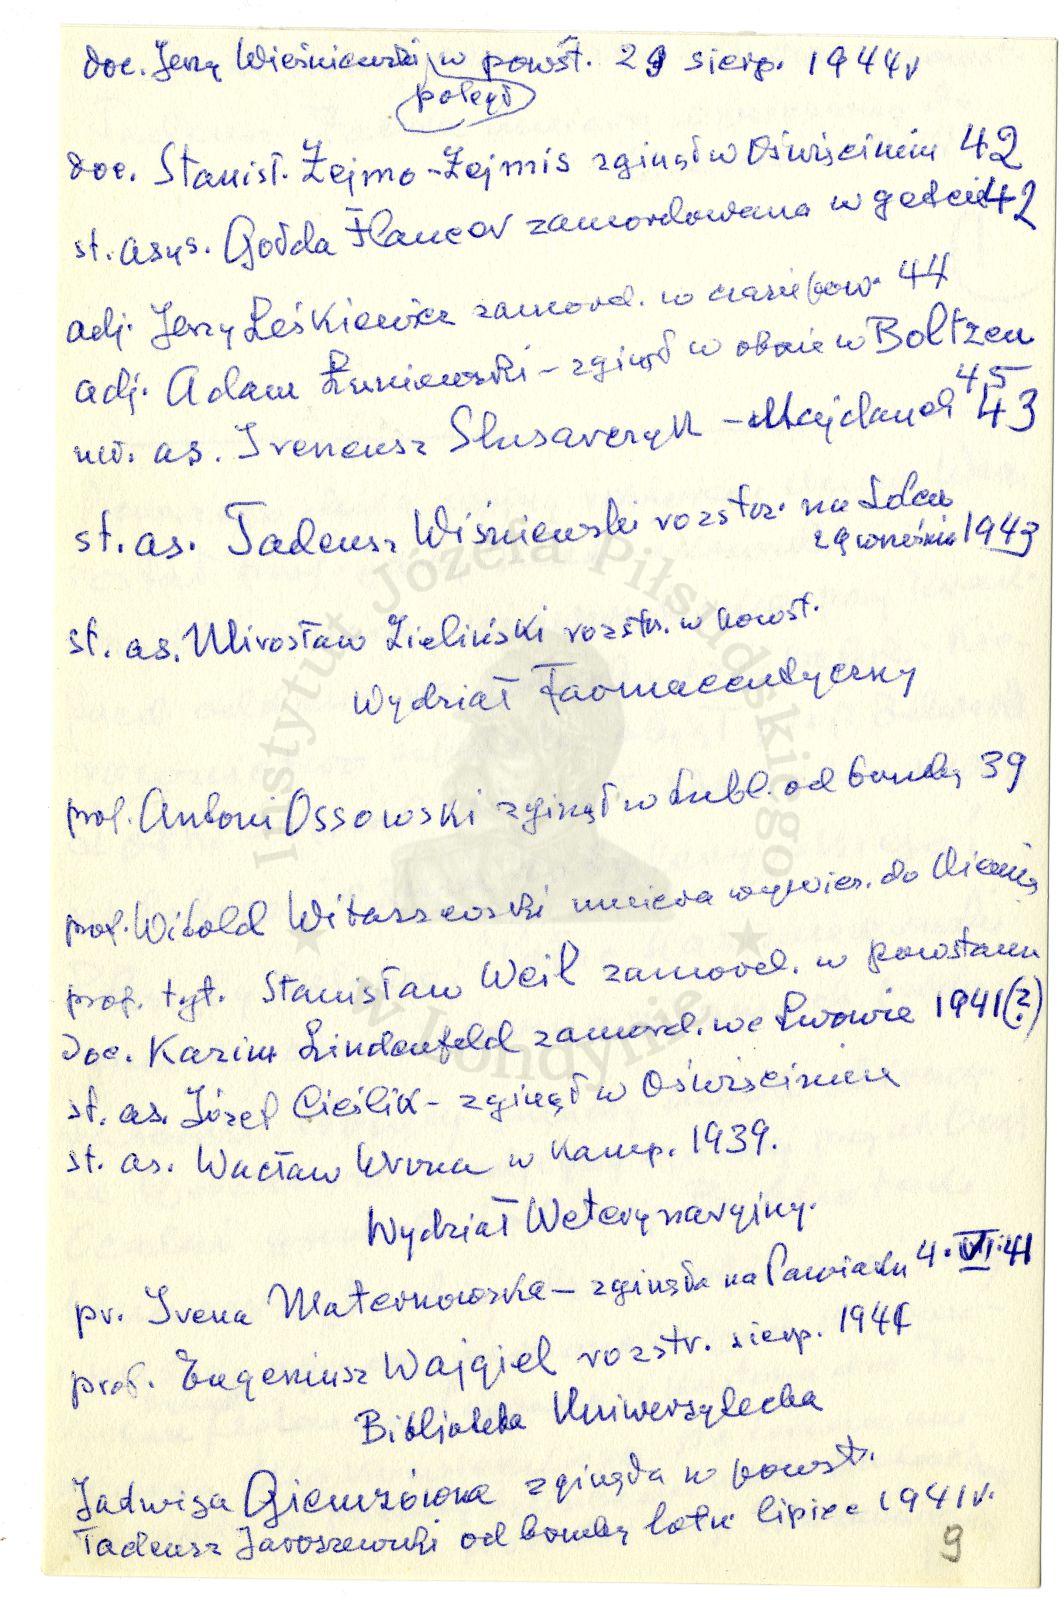 doc. Jerzy Wiśniewski w powst. 29 sierp. 1944 r
poległ
doc. Stanisł. Żejmo-Żejmis zginął w Oświęcimiu 42
st. asys. Gołda Flancer zamordowana w getcie 42
adj. Jerzy Leśkiewicz zamord. w czasie pow. 44
adj. Adam Łuniewski – zginął w obozie w Boltzen
45
mł. as. Ireneusz Slusarczyk – Majdanek 43
st. as. Tadeusz Wiśniewski rozstrz. na
29 września 1943
st. as. Mirosław Zieliński rozstrz. w powst.
Wydział Farmaceutyczny
prof. Antoni Ossowski zginął w Lubl. od bomby 39
prof. Witold Witaszewski umiera wywiez. do Niemiec
prof. tyt. Stanisław Weil zamord. w powstaniu
doc. Kazim Lindenfeld zamord. we Lwowie 1941 (?)
st. as. Józef Cieślik – zginął w Oświęcimiu
st. as. Wacław Wrona w Kamp. 1939.
Wydział Weterynaryjny.
pr. Irena Maternowska – zginęła na Pawiaku 4. VII. 41
prof. Eugeniusz Wajgiel rozstr. sierp. 1944
Biblioteka Uniwersytecka
Jadwiga zginęła w powst.
Tadeusz Jaroszewski od bomby lotn lipiec 1941 r.
9
Instytut Józefa Piłsudskiego
w Londynie